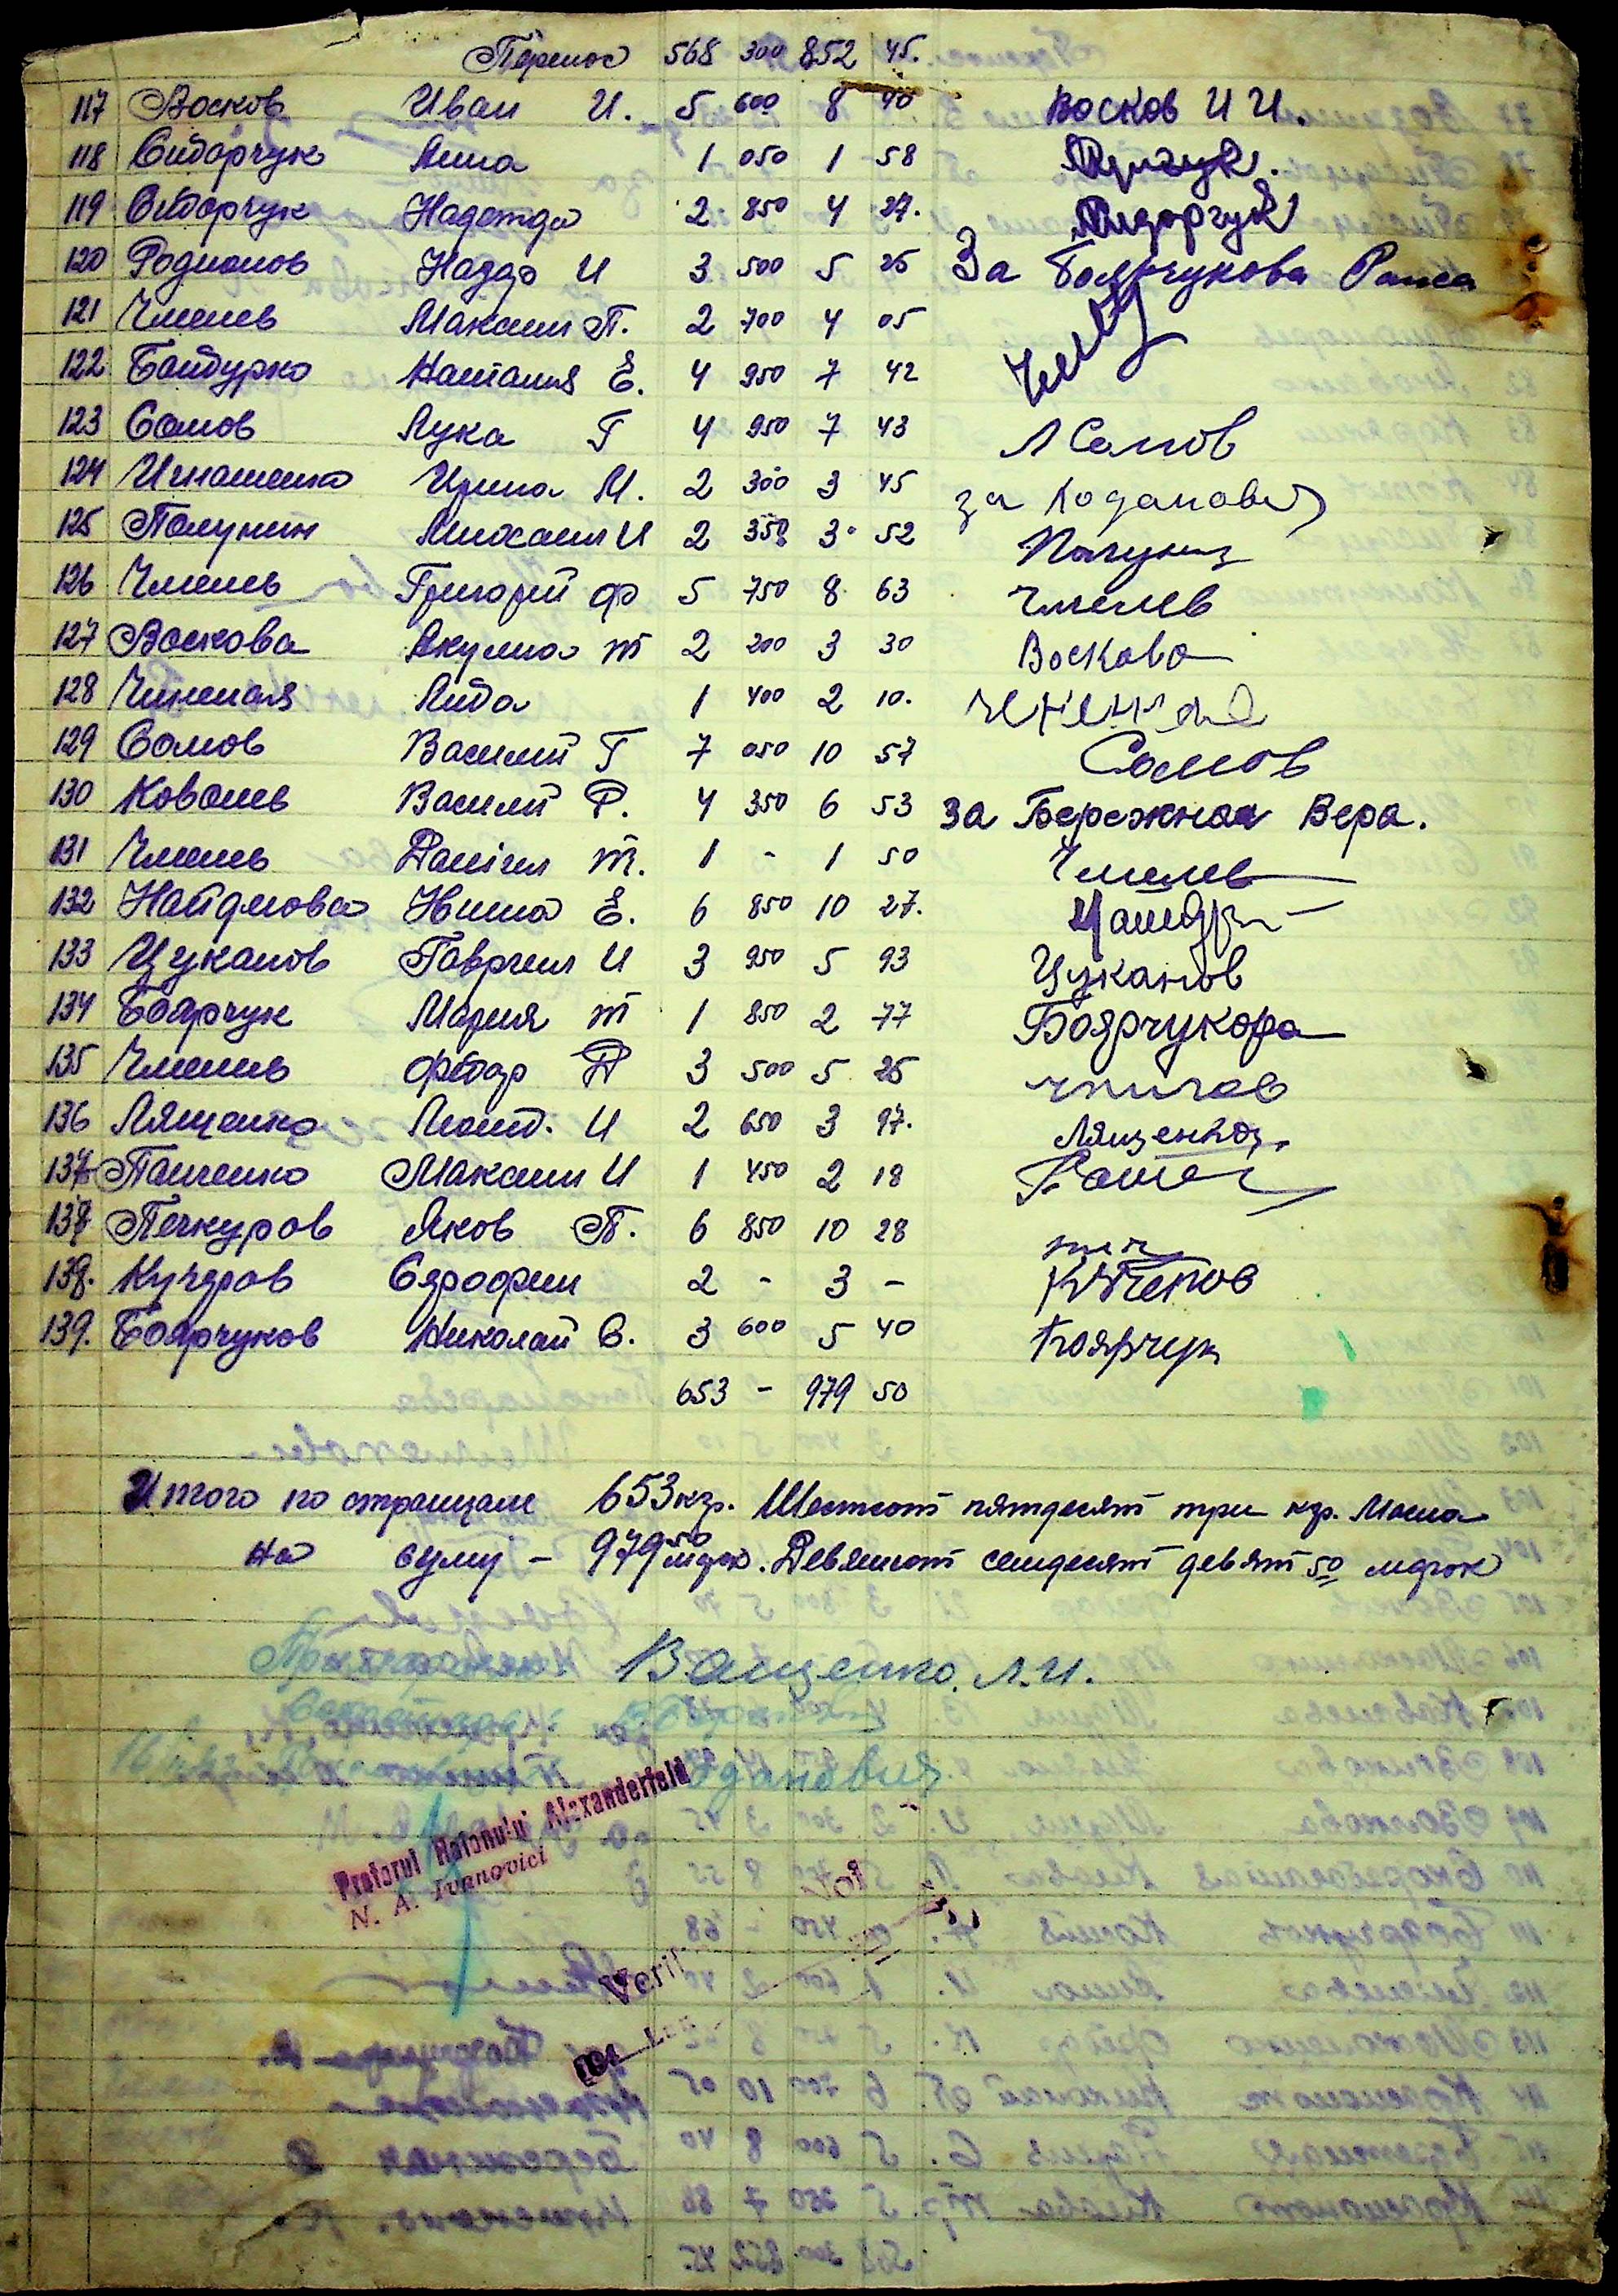 Перенос 568 300 852 45.
117 Восков Иван И. 5 600 8 40 Восков И И.
118 Сидорчук Анна 1 050 1 58
119 Сидорчук Надежда 2 850 4 27. Сидорчук
120 Родионов Назар И 3 500 5 25 За Боярчукова Раиса
121 Чмелев Максим П. 2 700 4 05
122 Байдурко Наталия Е. 4 950 7 42
123 Сомов Лука Г 4 950 7 43 Л Сомов
124 Игнатенко Ирина М. 2 300 3 45 за Богданович
125 Полунин Михаил И 2 350 3 52 Полунин
126 Чмелев Григорий Ф 5 750 8 63 Чмелев
127 Воскова Акулина Т 2 200 3 30 Воскова
128 Лида 1 400 2 10.
129 Сомов Василий Г 7 050 10 57 Сомов
130 Ковалев Василий Ф. 4 350 6 53 За Бережная Вера.
131 Чмелев Данил Т. 1 - 1 50 Чмелев
132 Найдионова Нина Е. 6 850 10 27.
133 Цуканов Гаврил И 3 950 5 93 Цуканов
134 Боярчук Мария Т 1 850 2 77 Боярчукова
135 Чмелев Федор Д 3 500 5 25
136 Лященко Леонт. И 2 650 3 97. Лященко
137 Панченко Максим И 1 450 2 18
138 Печкуров Яков П. 6 850 10 28 печ
139. Кучеров Серофим 2 - 3 - Кучеров
139. Боярчуков Николай С. 3 600 5 40 Боярчук
653 - 979 50
Итого по страницам 653 кгр. Шестсот пятдесят три кгр. Масла
на суму - 979 50 марок. Девятсот семдесят девят 50 марок
Ващенко. Л.И.
Pretorul Raionului Alexanderfeld
N. A. Ivanovici
Verif